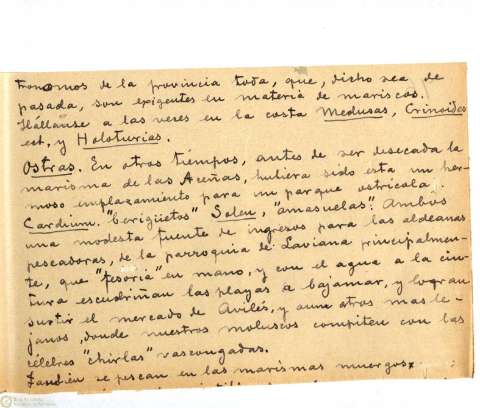 tronomos de la provincia toda, que, dicho sea de
pasada, son exigentes en materia de mariscos.
Hállanse a las veces en la costa Medusas, Crinoides
est, y Holoturias.
Ostras. En otros tiempos, antes de ser disecada la
marisma de las Aceñas, hubiera sido esta un her-
moso emplazamiento para un parque ostrícola.
Cardium. "berigüetos" Solen, "amasuelas". Ambos
una modesta fuente de ingresos para las aldeanas
pescadoras, de la parroquia de Laviana principalmen-
te, que "fesoria" en mano, y con el agua a la cin-
tura escudriñan las playas a bajamar, y logran
surtir el mercado de Avilés, y aun otros mas le-
janos, donde nuestros moluscos compiten con las
célebres "chirlas" vascongadas.
También se pescan en las marismas muergos